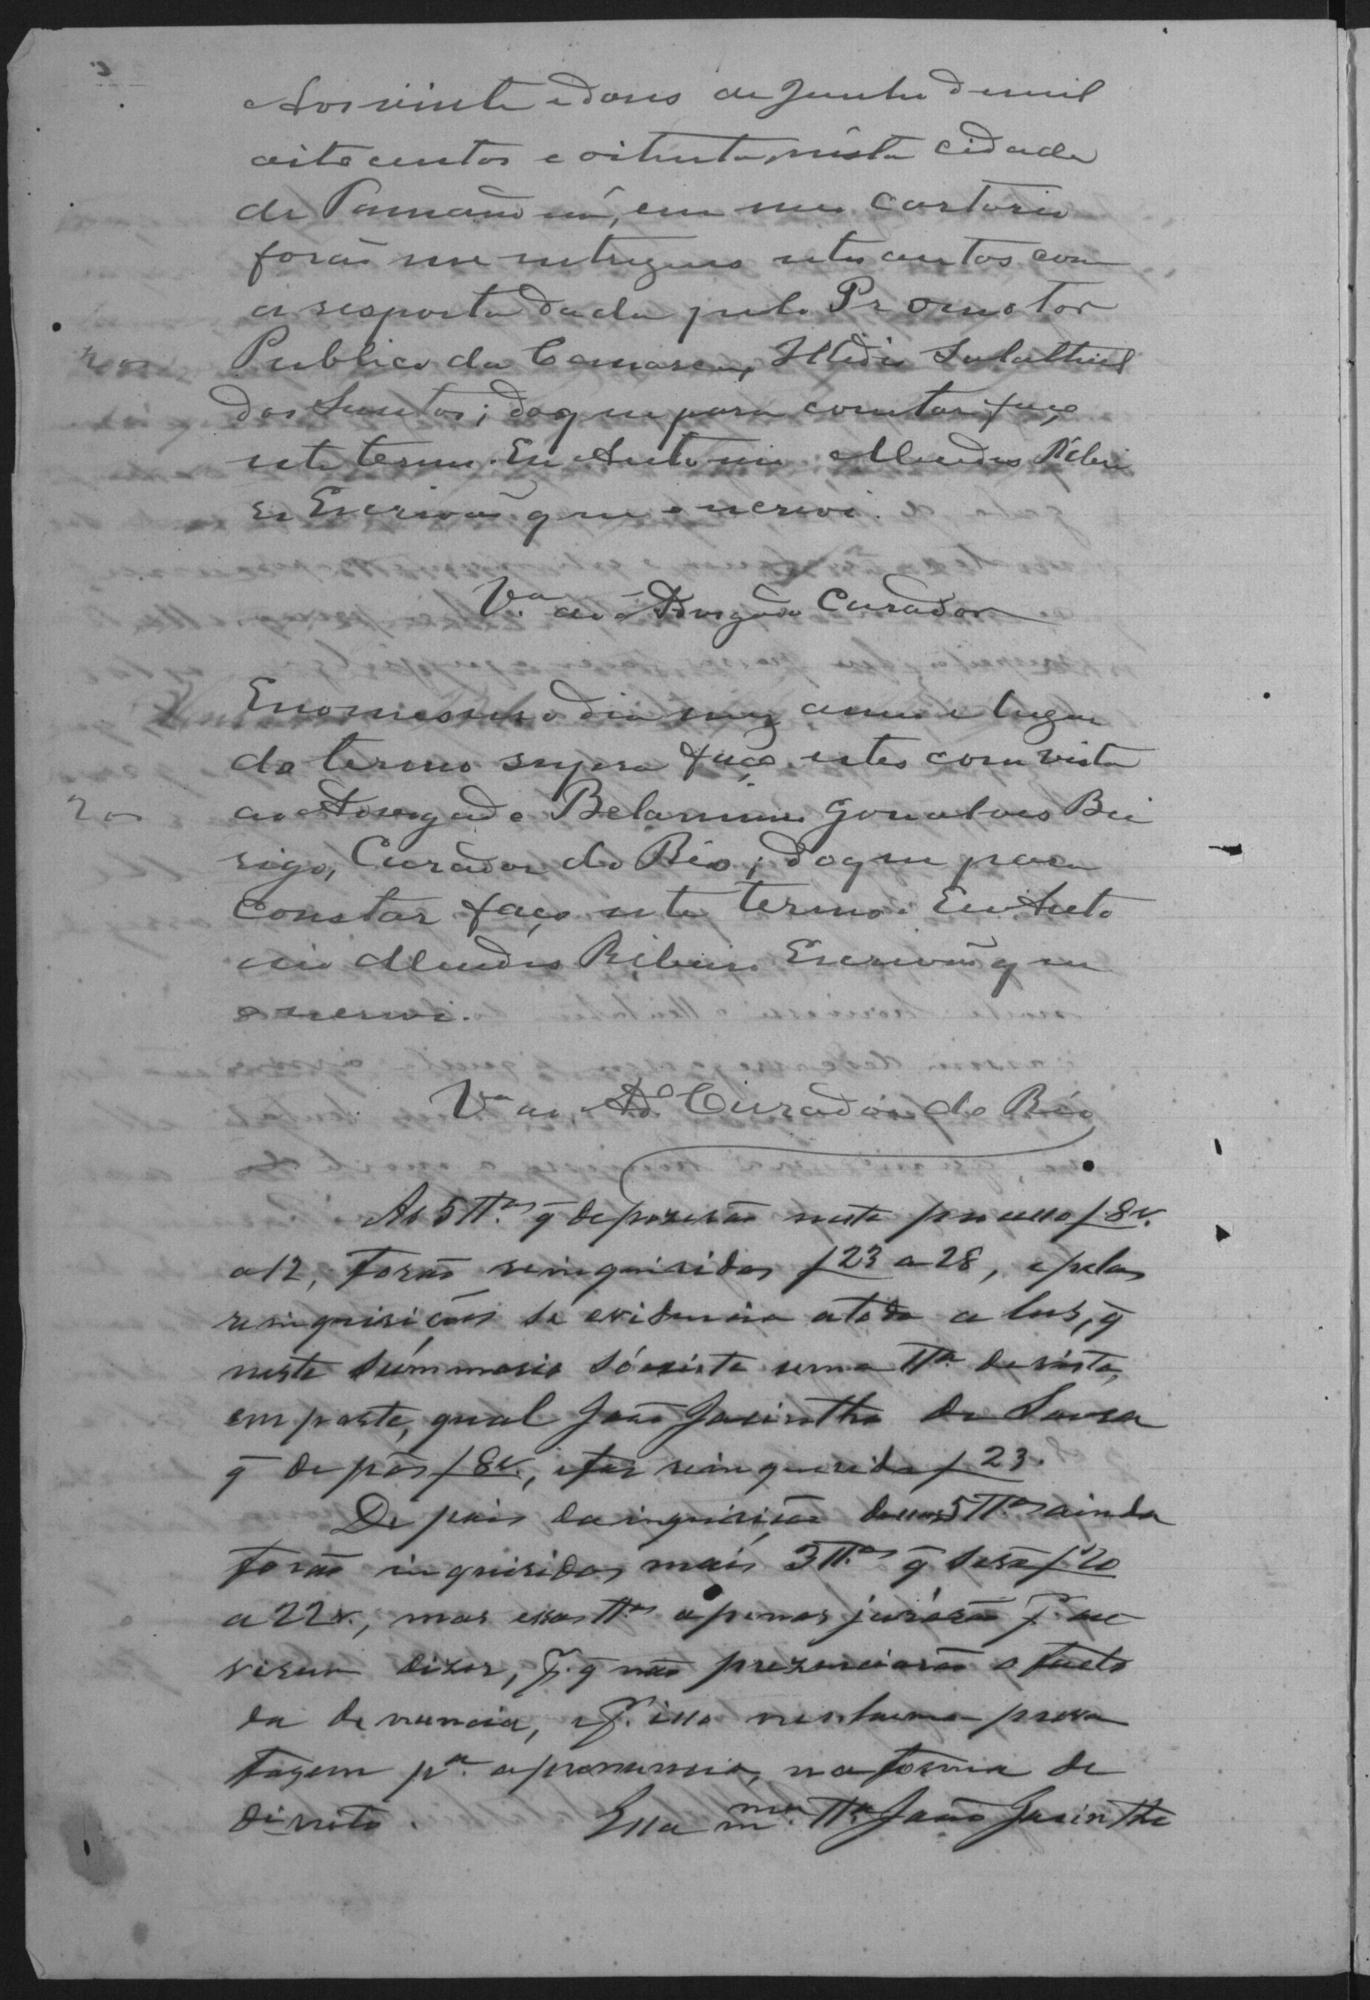 Aos vinte e dous de Junho de mil
oito centos e oitenta, nésta cidade
de em meu Cartorio
forão me entregues estes autos com
a resposta dada pelo Promotor
Publico da Comarca, Illidio Salathiel
dos Santos; do que para constar faço
este termo. Eu Antonio Mendes Ribei
ro Escrivão que escrevi.
V.ta ao Advogado Curador
E no mesmo dia mez anno e lugar
do termo supra faço estes com vista
200 ao Advogado Belarmino Gonsalves Bei
rigo, Curador do Réo; do que para
Constar faço este termo. Eu Anto
nio Mendes Ribeiro Escrivão que
escrevi.
V.ta ao Ad.º Curador do Réo
As 5 TT.as q̃ depozerão neste processo f 8v.
a 12, forão reinquiridas f 23 a 28, e pelas
reinquirições se evidencia a toda a lus, q̃
neste summario só existe uma TT.a de vista,
em parte, qual João Jacintho de Sousa
q̃ depôs f 8v., e foi reinquerida f 23.
De pois da inquirição dessas 5 TT.as ainda
forão inquiridas mais 3 TT.as q̃ f 20
a 22v., mas essas TT.as apenas jurárão p.r ou
virem dizer, p.r q̃ não prezenciarão o facto
da denuncia, e p.r isso nenhuma prova
fazem p.a a pronuncia, na forma de
direito. Essa m.ma TT.a João Jacintho